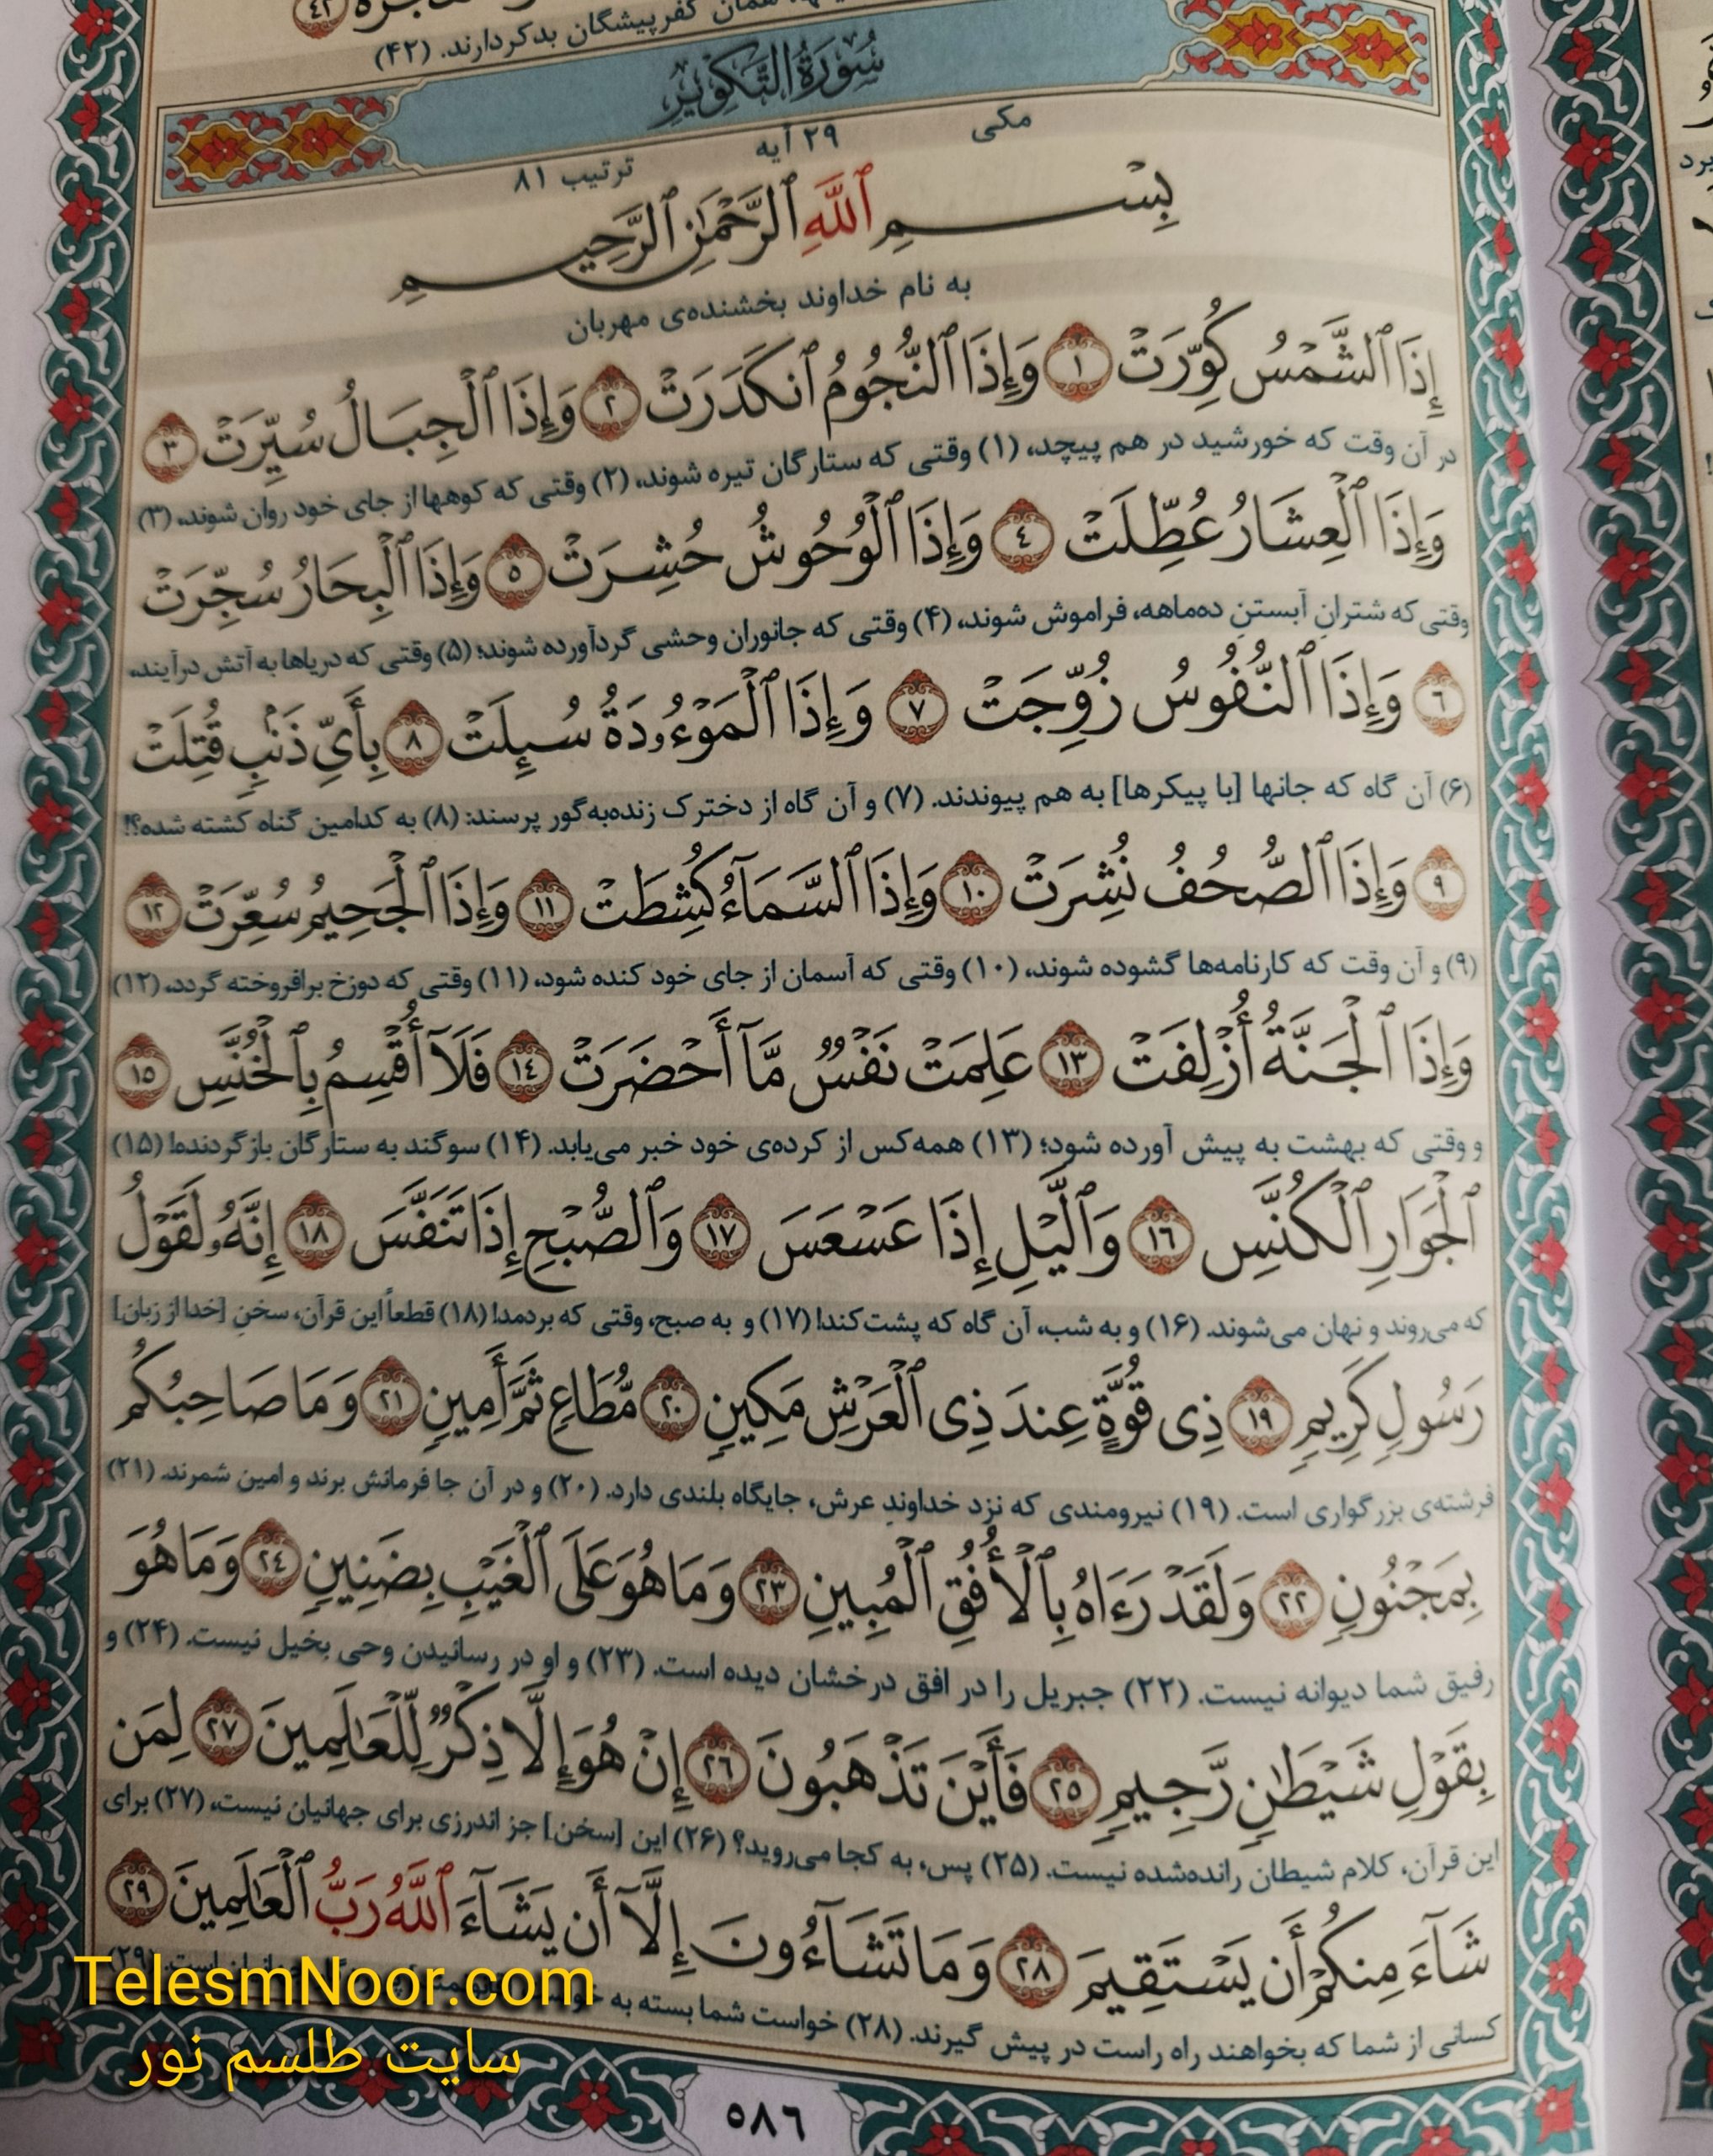 همان کفرپیشگان بدکردارند. (۴۲)
سُورَةُ التَّكْوِيرِ
مکی ۲۹ آیه ترتیب ۸۱
بِسْمِ ٱللَّهِ ٱلرَّحْمَٰنِ ٱلرَّحِيمِ
به نام خداوند بخشنده‌ی مهربان
إِذَا ٱلشَّمْسُ كُوِّرَتْ ١ وَإِذَا ٱلنُّجُومُ ٱنكَدَرَتْ ٢ وَإِذَا ٱلْجِبَالُ سُيِّرَتْ ٣
در آن وقت که خورشید در هم پیچد، (۱) وقتی که ستارگان تیره شوند، (۲) وقتی که کوهها از جای خود روان شوند، (۳)
وَإِذَا ٱلْعِشَارُ عُطِّلَتْ ٤ وَإِذَا ٱلْوُحُوشُ حُشِرَتْ ٥ وَإِذَا ٱلْبِحَارُ سُجِّرَتْ
وقتی که شترانِ آبستنِ ده‌ماهه، فراموش شوند، (۴) وقتی که جانوران وحشی گردآورده شوند؛ (۵) وقتی که دریاها به آتش درآیند،
٦ وَإِذَا ٱلنُّفُوسُ زُوِّجَتْ ٧ وَإِذَا ٱلْمَوْءُۥدَةُ سُئِلَتْ ٨ بِأَيِّ ذَنۢبٍ قُتِلَتْ
(۶) آن گاه که جانها [با پیکرها] به هم پیوندند. (۷) و آن گاه از دخترک زنده‌به‌گور پرسند: (۸) به کدامین گناه کشته شده؟!
٩ وَإِذَا ٱلصُّحُفُ نُشِرَتْ ١٠ وَإِذَا ٱلسَّمَآءُ كُشِطَتْ ١١ وَإِذَا ٱلْجَحِيمُ سُعِّرَتْ ١٢
(۹) و آن وقت که کارنامه‌ها گشوده شوند، (۱۰) وقتی که آسمان از جای خود کنده شود، (۱۱) وقتی که دوزخ برافروخته گردد، (۱۲)
وَإِذَا ٱلْجَنَّةُ أُزْلِفَتْ ١٣ عَلِمَتْ نَفْسٌ مَّآ أَحْضَرَتْ ١٤ فَلَآ أُقْسِمُ بِٱلْخُنَّسِ ١٥
و وقتی که بهشت به پیش آورده شود؛ (۱۳) همه‌کس از کرده‌ی خود خبر می‌یابد. (۱۴) سوگند به ستارگان بازگردنده! (۱۵)
ٱلْجَوَارِ ٱلْكُنَّسِ ١٦ وَٱلَّيْلِ إِذَا عَسْعَسَ ١٧ وَٱلصُّبْحِ إِذَا تَنَفَّسَ ١٨ إِنَّهُۥ لَقَوْلُ
که می‌روند و نهان می‌شوند. (۱۶) و به شب، آن گاه که پشت کند! (۱۷) و به صبح، وقتی که بردمد! (۱۸) قطعاً این قرآن، سخنِ [خدا از زبان]
رَسُولٍ كَرِيمٍ ١٩ ذِى قُوَّةٍ عِندَ ذِى ٱلْعَرْشِ مَكِينٍ ٢٠ مُّطَاعٍ ثَمَّ أَمِينٍ ٢١ وَمَا صَاحِبُكُم
فرشته‌ی بزرگواری است. (۱۹) نیرومندی که نزد خداوندِ عرش، جایگاه بلندی دارد. (۲۰) و در آن جا فرمانش برند و امین شمرند. (۲۱)
بِمَجْنُونٍ ٢٢ وَلَقَدْ رَءَاهُ بِٱلْأُفُقِ ٱلْمُبِينِ ٢٣ وَمَا هُوَ عَلَى ٱلْغَيْبِ بِضَنِينٍ ٢٤ وَمَا هُوَ
رفیق شما دیوانه نیست. (۲۲) جبریل را در افق درخشان دیده است. (۲۳) و او در رسانیدن وحی بخیل نیست. (۲۴) و
بِقَوْلِ شَيْطَٰنٍ رَّجِيمٍ ٢٥ فَأَيْنَ تَذْهَبُونَ ٢٦ إِنْ هُوَ إِلَّا ذِكْرٌ لِّلْعَٰلَمِينَ ٢٧ لِمَن
این قرآن، کلام شیطان رانده‌شده نیست. (۲۵) پس، به کجا می‌روید؟ (۲۶) این [سخن] جز اندرزی برای جهانیان نیست، (۲۷) برای
شَآءَ مِنكُمْ أَن يَسْتَقِيمَ ٢٨ وَمَا تَشَآءُونَ إِلَّآ أَن يَشَآءَ ٱللَّهُ رَبُّ ٱلْعَٰلَمِينَ ٢٩
کسانی از شما که بخواهند راه راست در پیش گیرند. (۲۸) خواست شما بسته به
TelesmNoor.com
سایت طلسم نور
٥٨٦